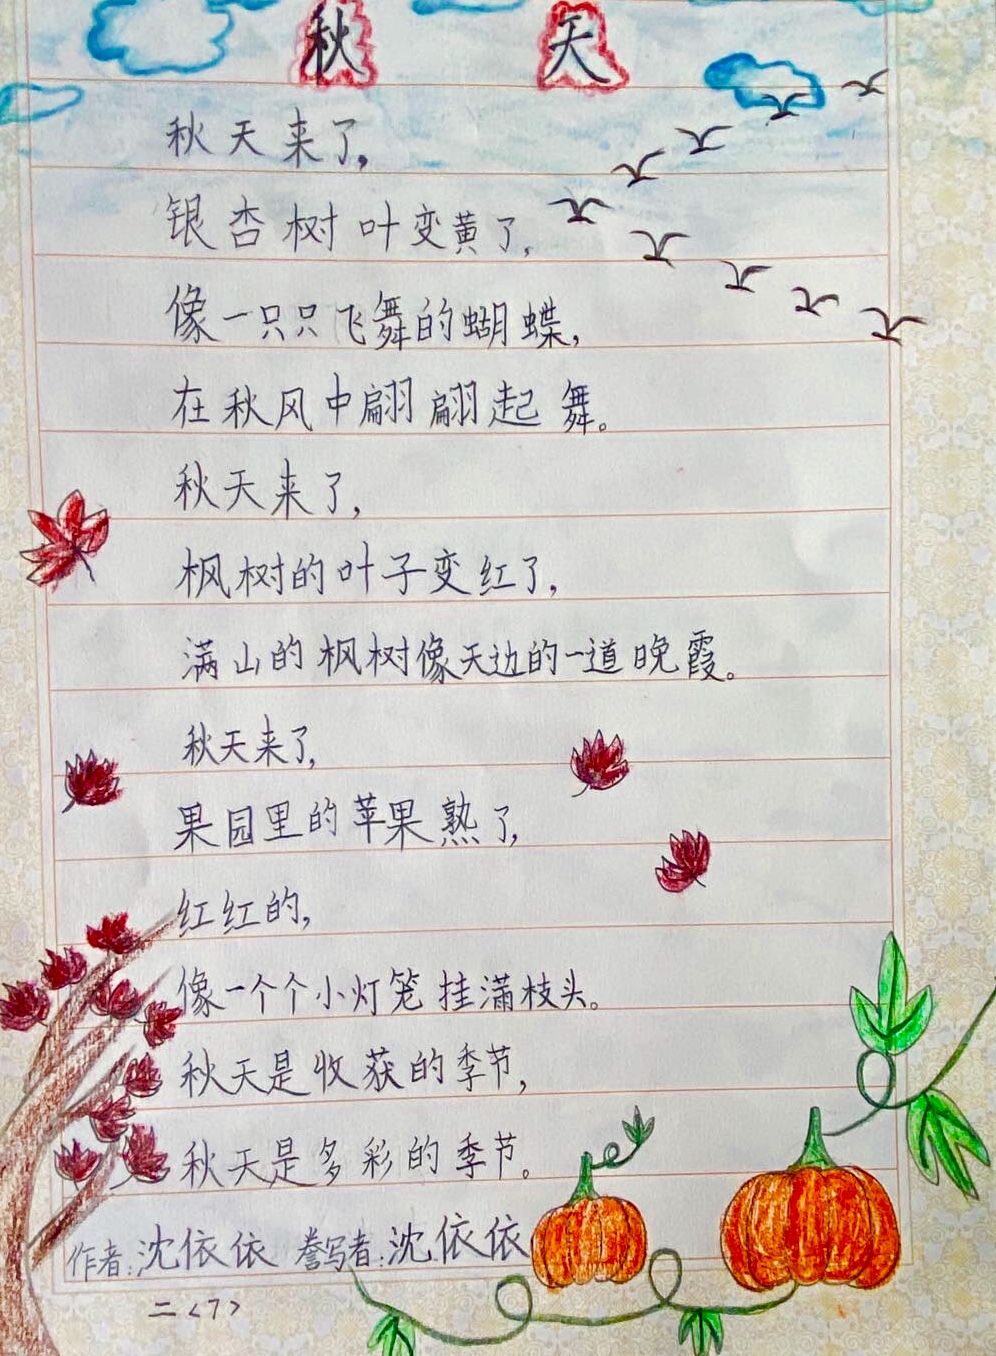 秋天
秋天来了,
银杏树叶变黄了,
像一只只飞舞的蝴蝶,
在秋风中翩翩起舞。
秋天来了,
枫树的叶子变红了,
满山的枫树像天边的一道晚霞。
秋天来了,
果园里的苹果熟了,
红红的,
像一个个小灯笼挂满枝头。
秋天是收获的季节,
秋天是多彩的季节。
作者:沈依依 誊写者:沈依依
二<7>